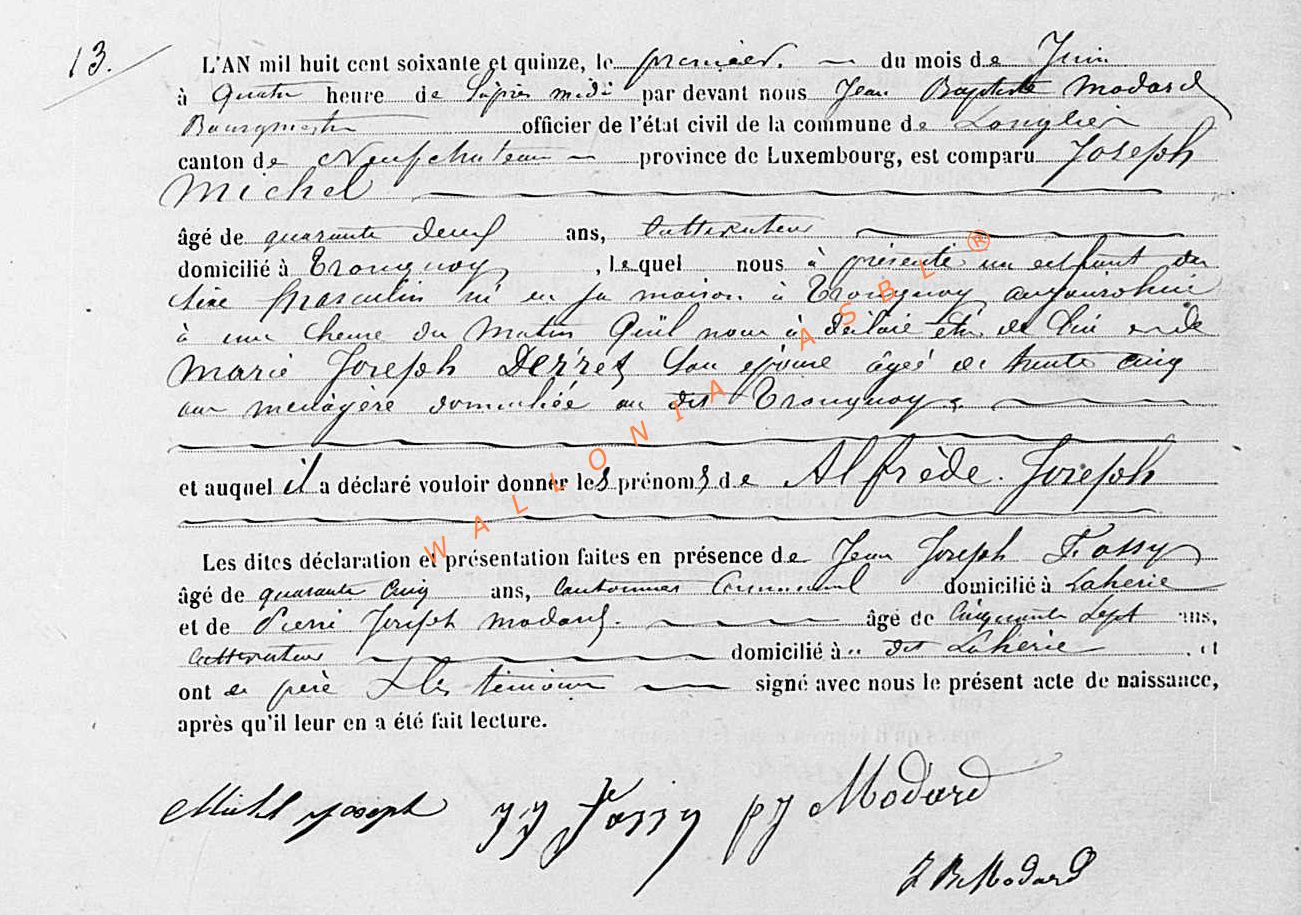 13.
L'AN mil huit cent soixante et quinze, le premier. du mois de Juin
à Quatre heure de l'après midi par devant nous Jean Baptiste Modard
Bourgmestre officier de l'état civil de la commune de Longlier
canton de Neufchateau province de Luxembourg, est comparu Joseph
Michel
âgé de quarante deux ans, cultivateur
domicilié à Tronquoy, lequel nous à présenté un enfant du
sexe masculin né en sa maison à Tronquoy aujourd'hui
à une heure du matin Qu'il nous à déclaré être de lui et de
Marie Joseph Derret son épouse âgée de trente cinq
ans ménagère domiciliée au dit Tronquoy.
et auquel il a déclaré vouloir donner les prénoms de Alfrède. Joseph
Les dites déclaration et présentation faites en présence de Jean Joseph Fassy
âgé de quarante cinq ans, Cantonnier Communal domicilié à Laherie
et de Pierre Joseph Modard. âgé de Cinquante Sept ans,
cultivateur domicilié à dit Laherie et
ont le père & les témoins signé avec nous le présent acte de naissance,
après qu'il leur en a été fait lecture.
Michel Joseph JJ Fassy pJ Modard
J B Modard
WALLONIA ASBL ®